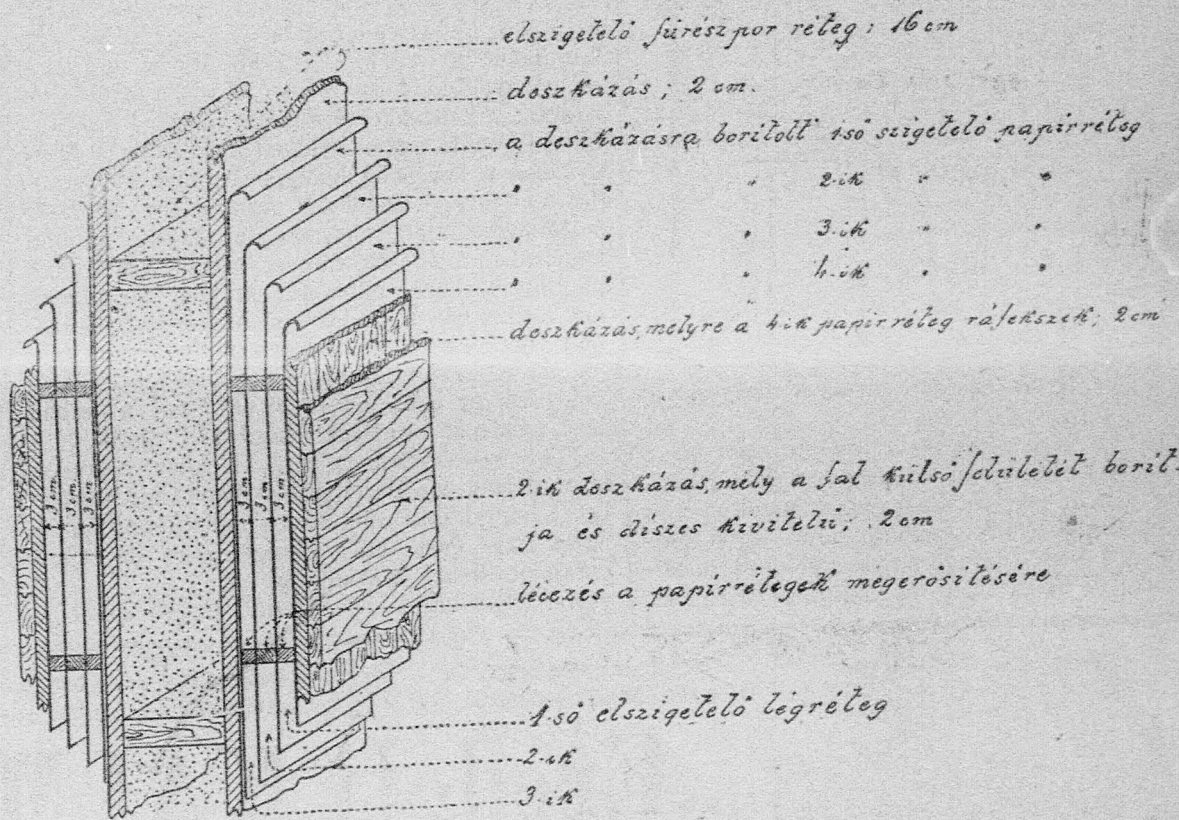 elszigetelő fürészpor réteg; 16 cm
deszkázás; 2 cm.
a deszkázásra borított 1-ső szigetelő papírréteg
" " " 2-ik " "
" " " 3-ik " "
" " " 4-ik " "
deszkázás, melyre a 4-ik papírréteg ráfekszek; 2 cm
3 cm 3 cm 3 cm
3 cm 3 cm 3 cm
2-ik deszkázás, mely a fal külső felületét borít-
ja és díszes kivitelű; 2 cm
lécezés a papírrétegek megerősítésére
1-ső elszigetelő légréteg
2-ik
3-ik